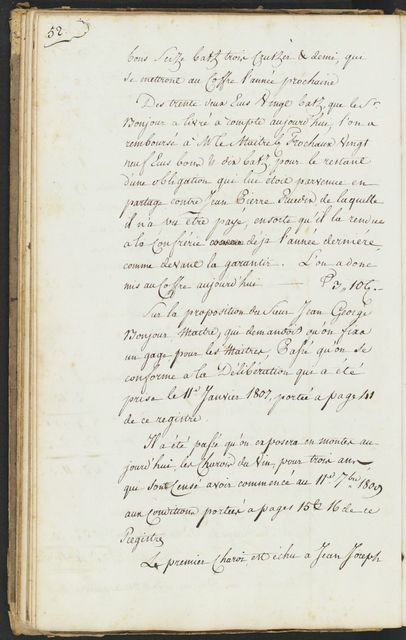 52.
bons Seize batz trois Crutzer & demi, qui
se mettront au Coffre l'année prochaine
Des trente deux Ecus Vingt batz, que le Sr
Bonjour a livré à compte aujourd'hui, l'on a
remboursé à Mr le Maitre Ls Prochaux Vingt
neuf Ecus bons & dix batz, pour le restant
d'une obligation qui lui étoit parvenue en
partage contre Jean Pierre de laquelle
il n'a pu être payé, ensorte qu'il la rendue
à la Confrérie déja l'année dernière,
comme devant la garantir. L'on a donc
mis au Coffre aujourd'hui
Sur la proposition du Sieur Jean George
Bonjour Maitre, qui demandoit qu'on fixa
un gage pour les Maitres, Passé qu'on se
conforme à la Délibération qui a été
prise le 11e Janvier 1807, portée à page 41
de ce registre.
Il a été passé qu'on exposera en montes au-
jourd'hui, les Charois du Vin, pour trois ans
que sont censé avoir commencé au 11e 7bre 1809
aux Conditions portées à pages 15 & 16 de ce
Registre
Le premier Charoi est échu à Jean Joseph